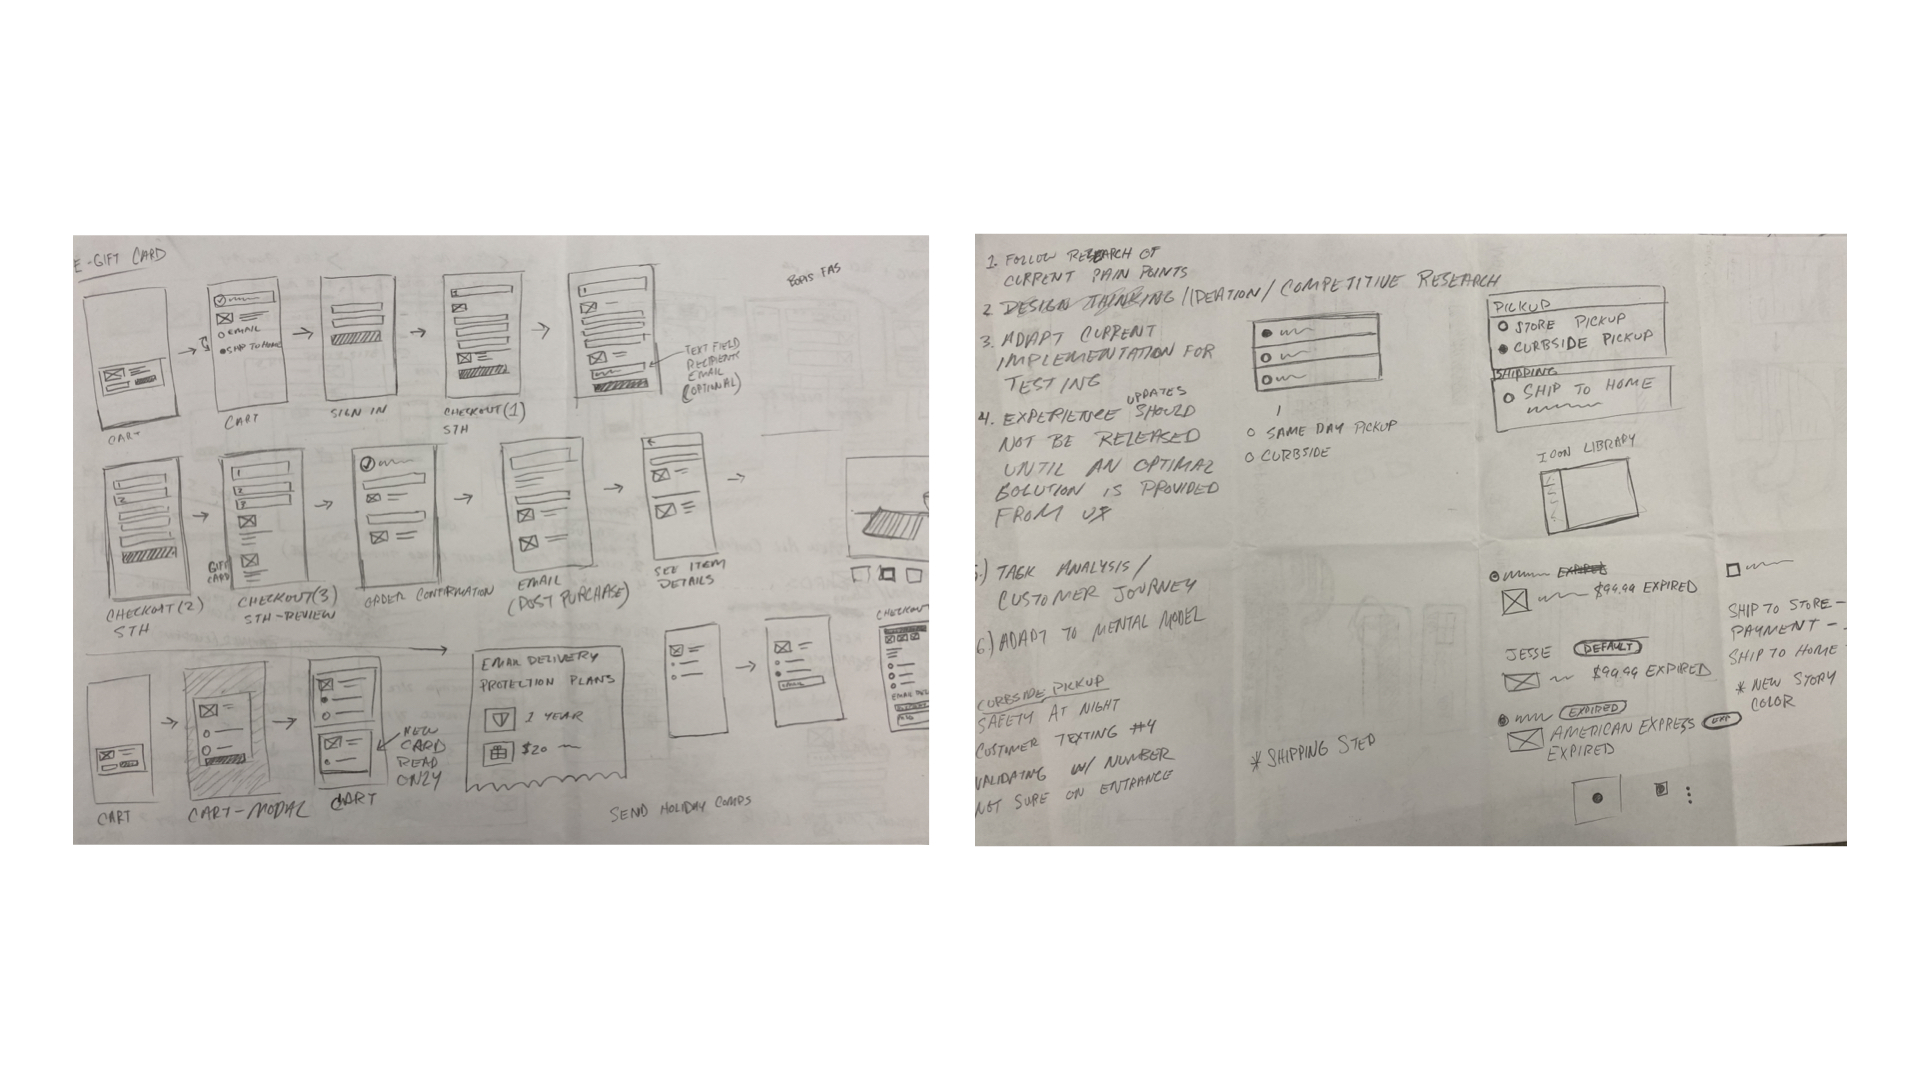 E-GIFT CARD
BOPIS FAS
EMAIL
SHIP TO HOME
TEXT FIELD
RECIPIENTS
EMAIL
(OPTIONAL)
CART
CART
SIGN IN
CHECKOUT (1)
STH
1
2
1
2
3
GIFT
CARD
CHECKOUT (2)
STH
CHECKOUT (3)
STH-REVIEW
ORDER CONFIRMATION
EMAIL
(POST PURCHASE)
SEE ITEM
DETAILS
EMAIL DELIVERY
PROTECTION PLANS
1 YEAR
$20
CHECKOUT
NEW
CARD
READ
ONLY
CART
CART-MODAL
CART
SEND HOLIDAY COMPS
1. FOLLOW RESEARCH OF
CURRENT PAIN POINTS
2 DESIGN THINKING/IDEATION/COMPETITIVE RESEARCH
3. ADAPT CURRENT
IMPLEMENTATION FOR
TESTING
UPDATES
4. EXPERIENCE SHOULD
NOT BE RELEASED
UNTIL AN OPTIMAL
SOLUTION IS PROVIDED
FROM UX
5.) TASK ANALYSIS/
CUSTOMER JOURNEY
6.) ADAPT TO MENTAL MODEL
CURBSIDE PICKUP
SAFETY AT NIGHT
CUSTOMER TEXTING #4
VALIDATING W/ NUMBER
NOT SURE ON ENTRANCE
SAME DAY PICKUP
CURBSIDE
* SHIPPING STEP
PICKUP
STORE PICKUP
CURBSIDE PICKUP
SHIPPING
SHIP TO HOME
ICON LIBRARY
EXPIRES
$99.99 EXPIRED
JESSE DEFAULT
$99.99 EXPIRED
EXPIRED
AMERICAN EXPRESS EXP
EXPIRED
SHIP TO STORE -
PAYMENT -
SHIP TO HOME
* NEW STORY
COLOR